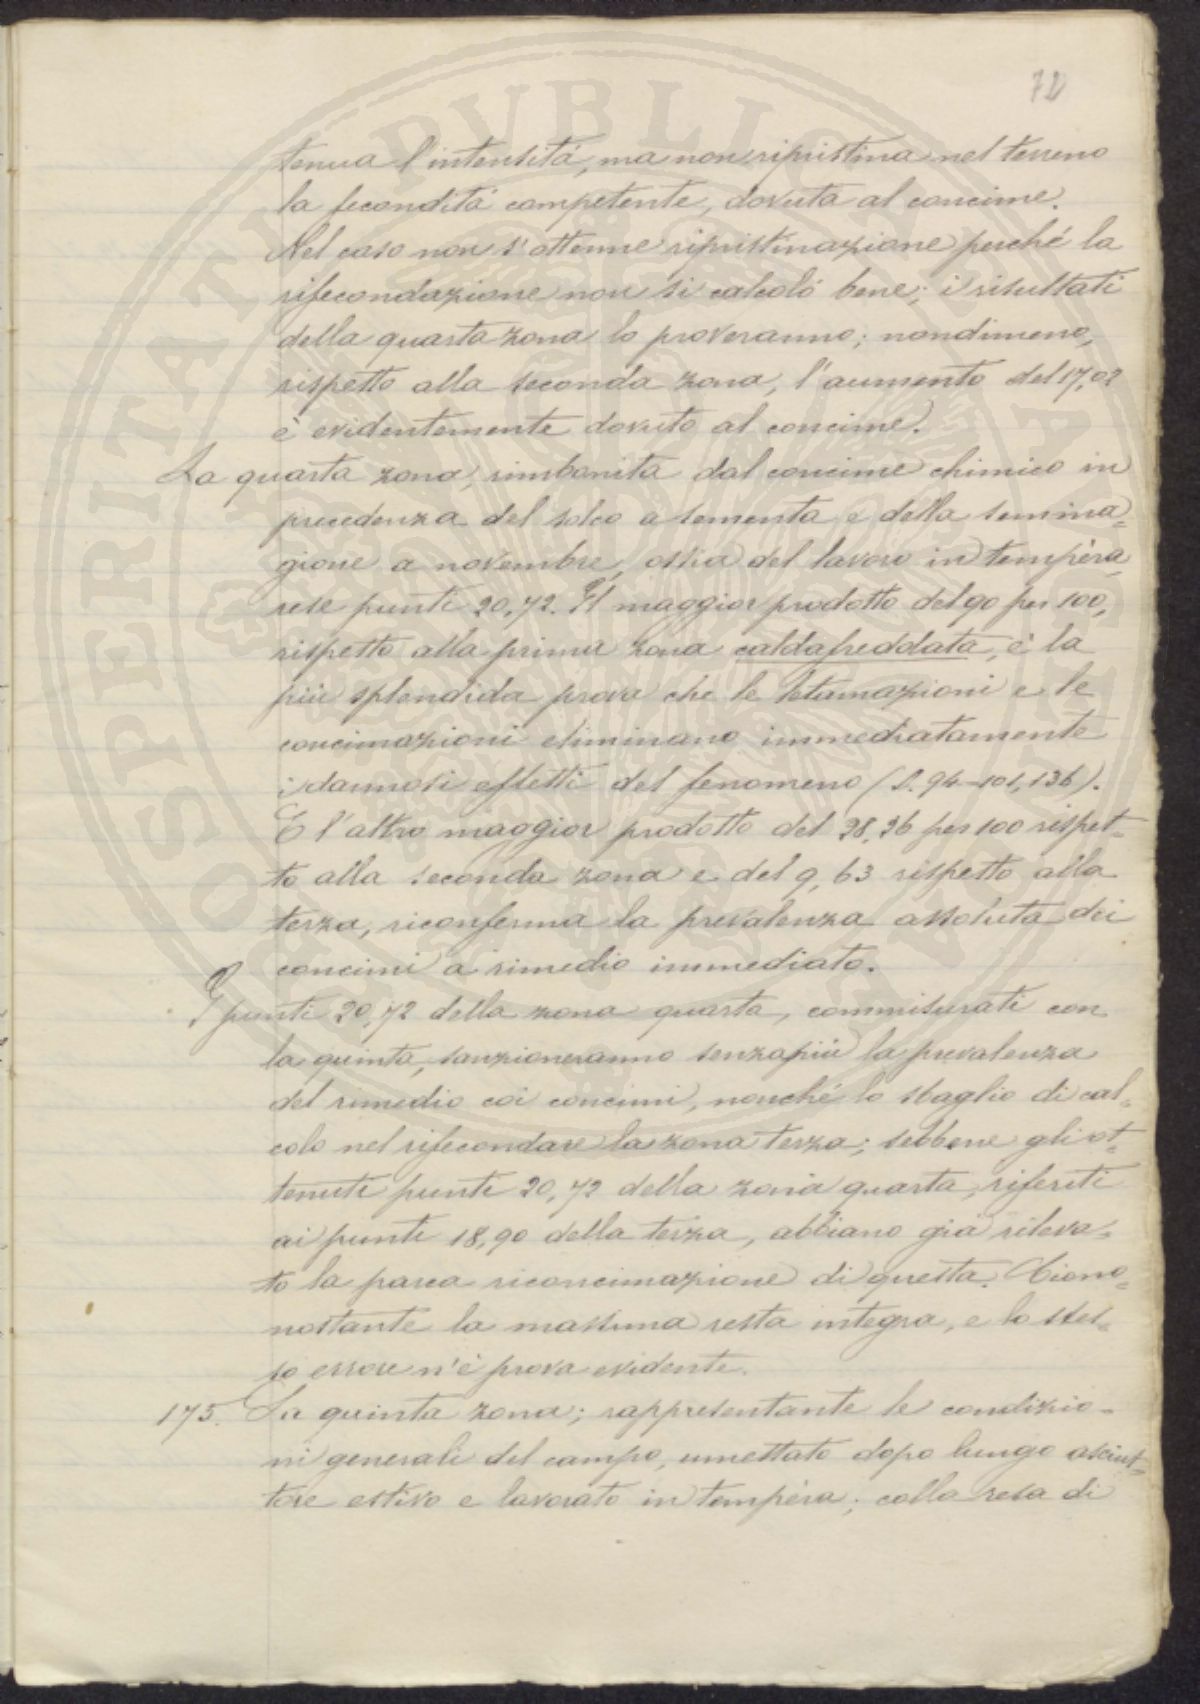 72
tenua l'intensità, ma non ripristina nel terreno
la fecondità competente, dovuta al concime.
Nel caso non s'ottenne ripristinazione perché la
rifecondazione non si calcolò bene; i risultati
della quarta zona lo proveranno; nondimeno,
rispetto alla seconda zona, l'aumento del 17,02
è evidentemente dovuto al concime.
La quarta zona, rimbonita dal concime chimico in
precedenza del solco a sementa e della semina=
gione a novembre, ossia del lavoro in tempèra,
rese punti 20,72. Il maggior prodotto del 90 per 100,
rispetto alla prima zona caldafreddata, è la
più splendida prova che le letamazioni e le
concimazioni eliminano immediatamente
i dannosi effetti del fenomeno (S. 94-101, 136).
E l'altro maggior prodotto del 28,26 per 100 rispet=
to alla seconda zona e del 9,63 rispetto alla
terza, riconferma la prevalenza assoluta dei
concimi a rimedio immediato.
I punti 20,72 della zona quarta, commisurati con
la quinta, sanzioneranno senzapiù la prevalenza
del rimedio coi concimi, nonché lo sbaglio di cal=
colo nel rifecondare la zona terza; sebbene gli ot=
tenuti punti 20,72 della zona quarta, riferiti
ai punti 18,90 della terza, abbiano già rileva=
to la parca riconcimazione di questa. Ciono=
nostante la massima resta integra, e lo stes=
so errore n'è prova evidente.
175. La quinta zona; rappresentante le condizio=
ni generali del campo, umettato dopo lungo asciut=
tore estivo e lavorato in tempèra; colla resa di
SOSPERITATI PVBLICAE AVGENDAE